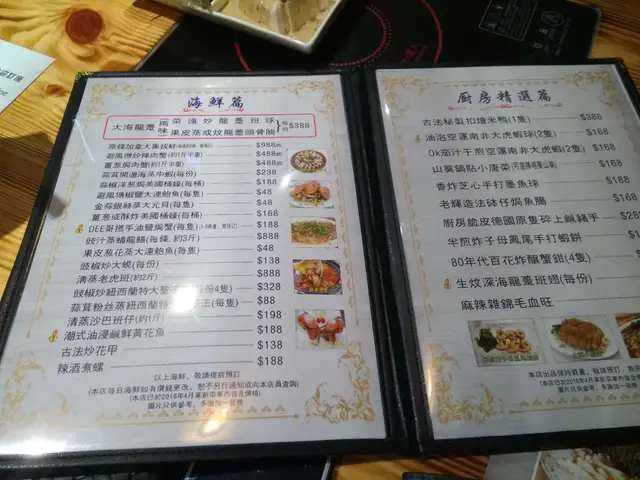 海鮮篇
大海龍躉 兩味 菜遠炒龍躉班球 果皮蒸或炆龍躉頭骨腩 $388
原條加拿大象拔蚌 $988
避風塘炒辣肉蟹(約1斤半量) $488
薑葱焗肉蟹(約1斤半量) $488
蒜茸開邊海蒸中蝦(每份) $238
豉椒洋葱焗美國桶蠔(每桶) $168
避風塘椒鹽大連鮑魚(每隻) $48
金蒜銀絲蒸大元貝(每隻) $48
薑葱或酥炸美國桶蠔(每桶) $168
DEE哥撚手油鹽焗蟹(每隻)
豉汁蒸蟠龍鱔(每條,約3斤) $888
果皮葱花蒸大連鮑魚(每隻) $48
豉椒炒大蜆(每份) $138
清蒸老虎班(約2斤) $888
豉椒炒紐西蘭特大 $328
蒜茸粉絲蒸紐西蘭特 王(每隻) $88
清蒸沙巴班仔(約1斤) $198
潮式油浸鹹鮮黃花魚 $188
古法炒花甲 $138
辣酒煮螺 $188
以上海鮮、敬請提前預訂
(本店每日海鮮如有價錢更改,恕不另行通知或向本店員查詢)
(本店已於2018年4月革新菜單內容及價格)
圖片只供參考、多謝加一服務
廚房精選篇
古法秘製扣燴米鴨(1隻)
油泡空運南非大虎蝦球(2隻)
Ok茄汁干煎空運南非大虎蝦(2隻)
山寨鍋貼小唐菜
香炸芝心手打墨魚球
老輝造法砵仔焗魚腸
廚房脆皮德國原隻碎上鹹豬手
半煎炸子母鳳尾手打蝦餅
80年代百花炸釀蟹鉗(4隻)
生炆深海龍躉班翅(每份)
麻辣雜錦毛血旺
$168
$168
$168
$168
$168
$168
$288
$168
$
$
本店出品保持質量,敬請預訂
(本店已於2018年4月革新菜單內容及價
圖片只供參考、多謝加一服務